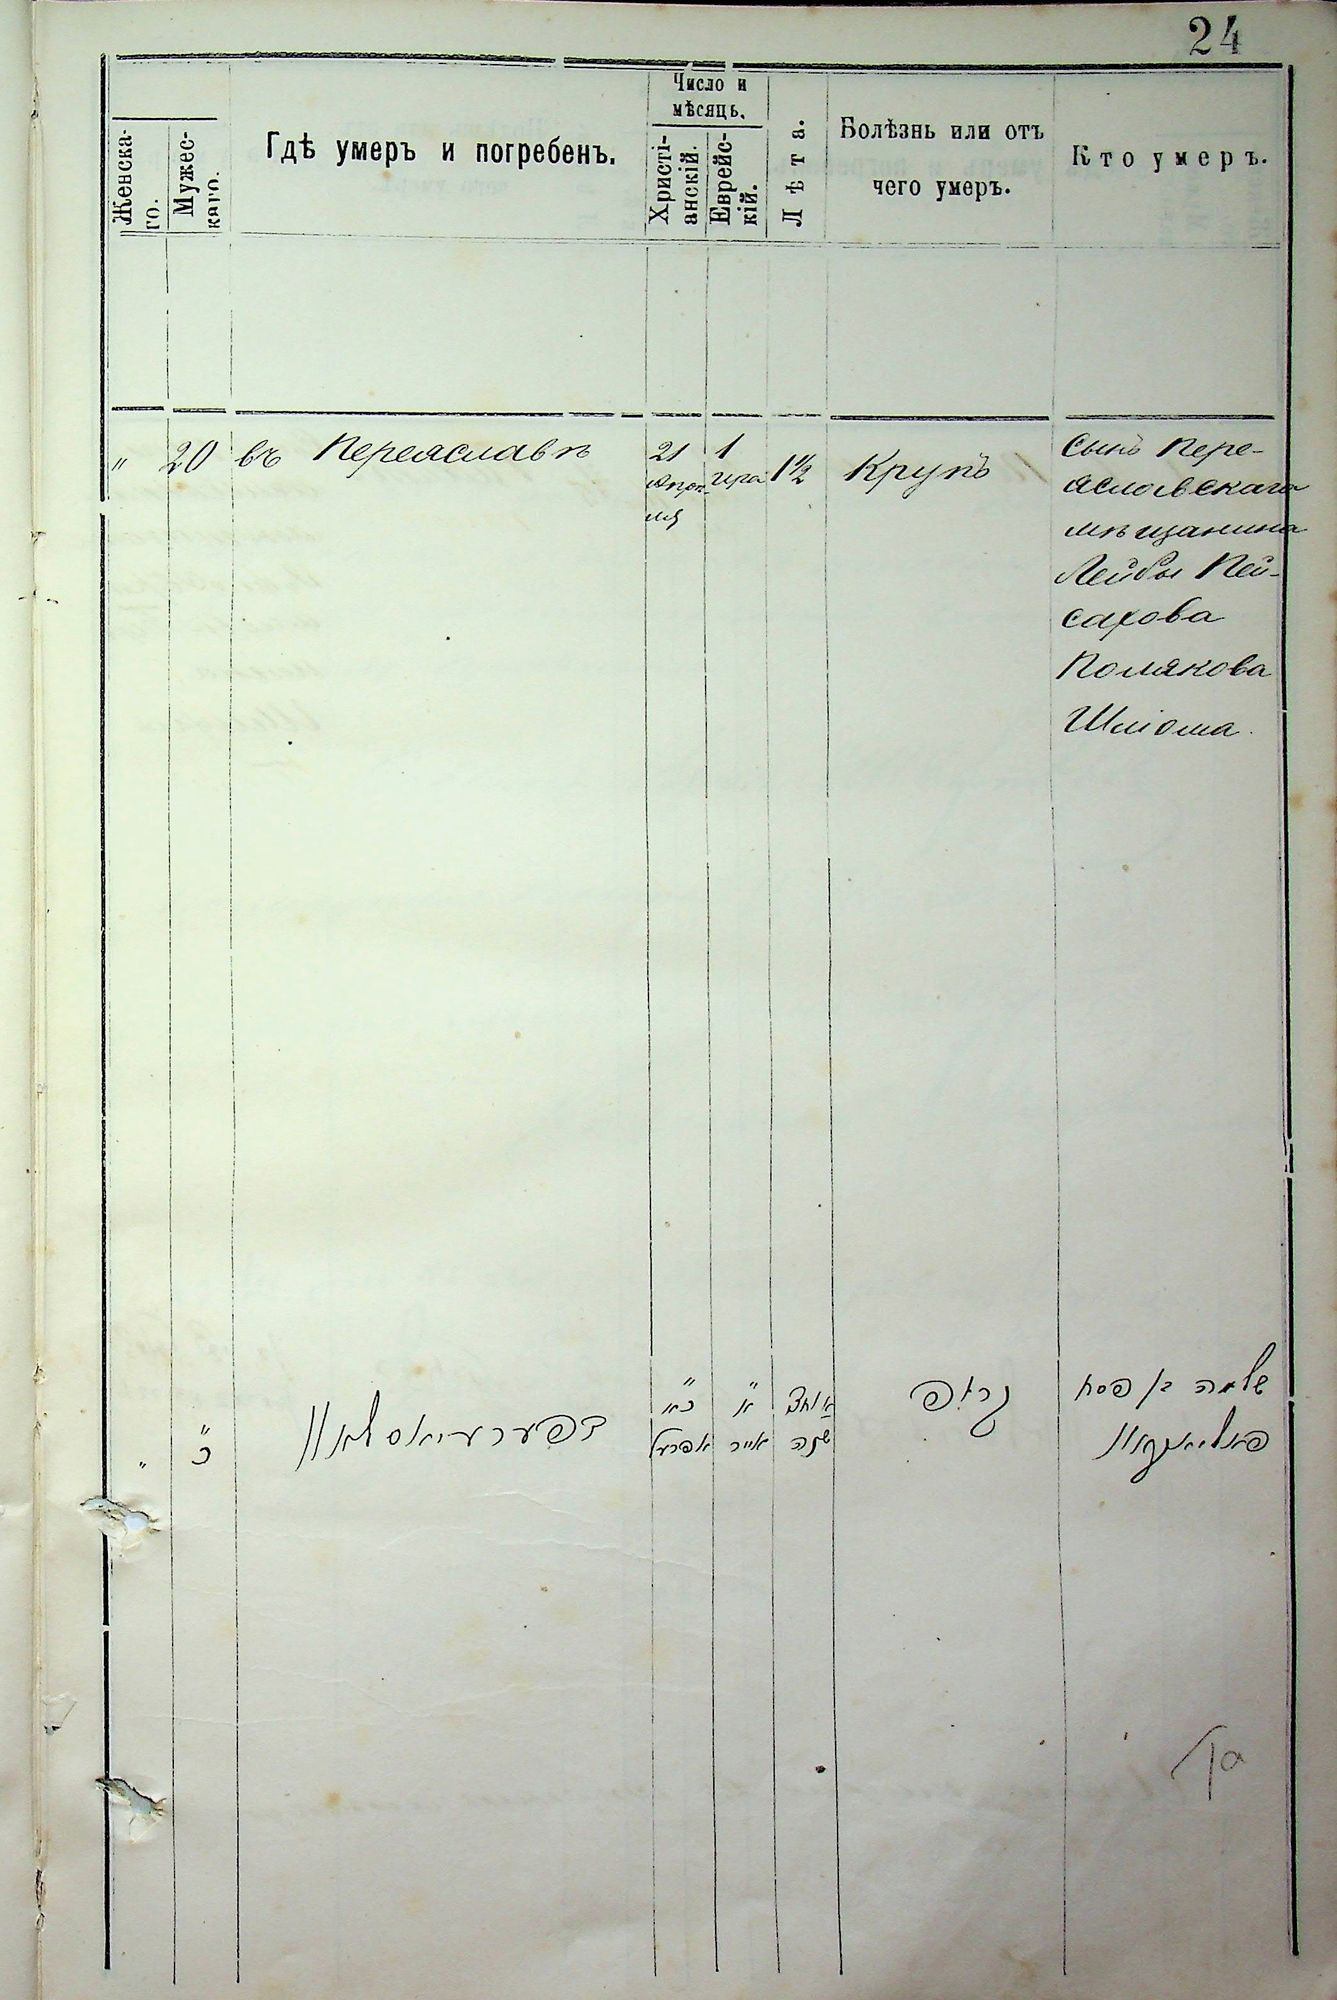 24
Женска-
го.
Мужес-
каго.
Гдѣ умеръ и погребенъ.
Число и
мѣсяцъ.
Христі-
анскій.
Еврейс-
кій.
Лѣта.
Болѣзнь или отъ
чего умеръ.
Кто умеръ.
" 20 въ Переяславѣ
21
Апрѣ-
ля
1
Ира
1½
Крупъ
Сынъ Пере-
яславскаго
мѣщанина
Лейбы Пей-
сахова
Полякова
Шліома.
"
כ
דפערעיאסלאוו
כא
אפריל
א
אייר
שנה
קרופ
שלמה בן פסח
פאליאקאוו